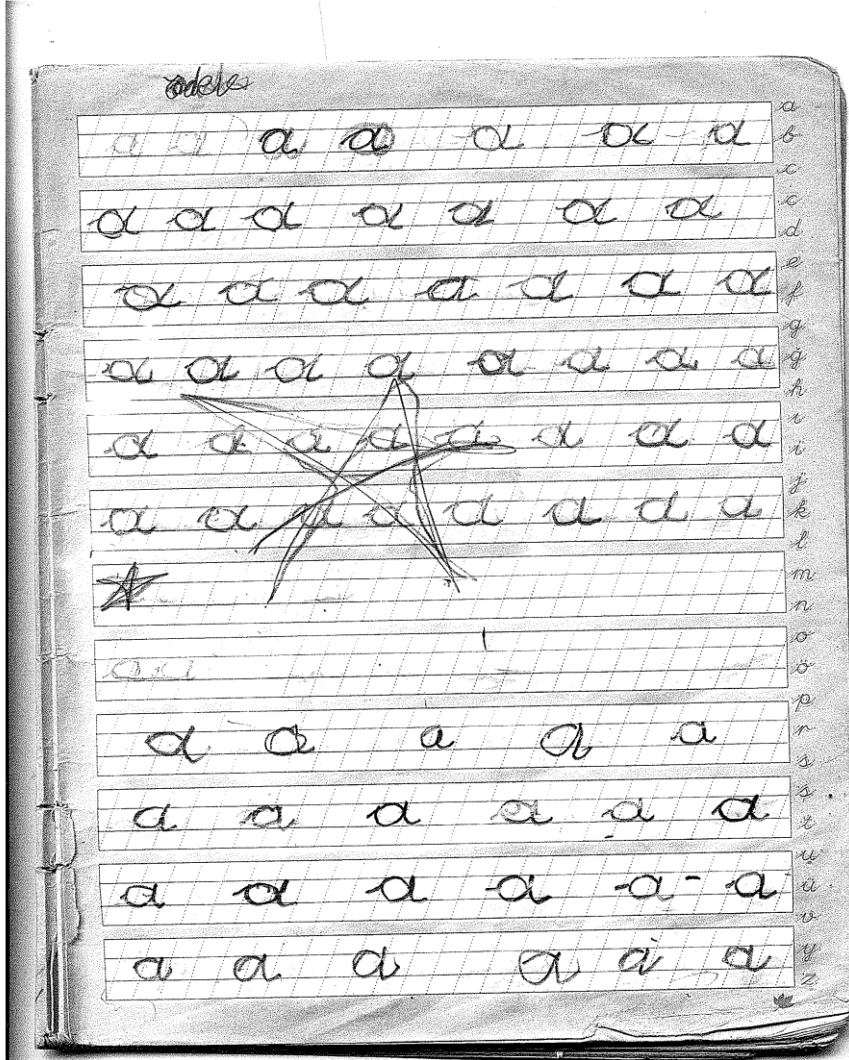 a a a a a a a
a a a a a a a
a a a a a a a
a a a a a a a a
a a a a a a a a
a a a a a a a a
a a a a a
a a a a a a
a a a a a a
a a a a a a
a
b
c
ç
d
e
f
g
ğ
h
ı
i
j
k
l
m
n
o
ö
p
r
s
ş
t
u
ü
v
y
z